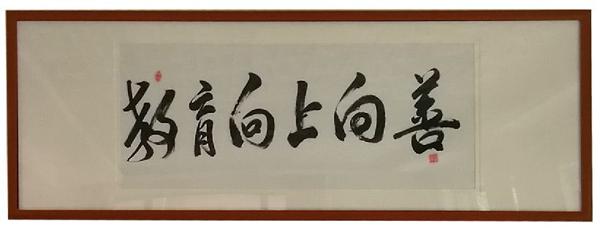 教育向上向善